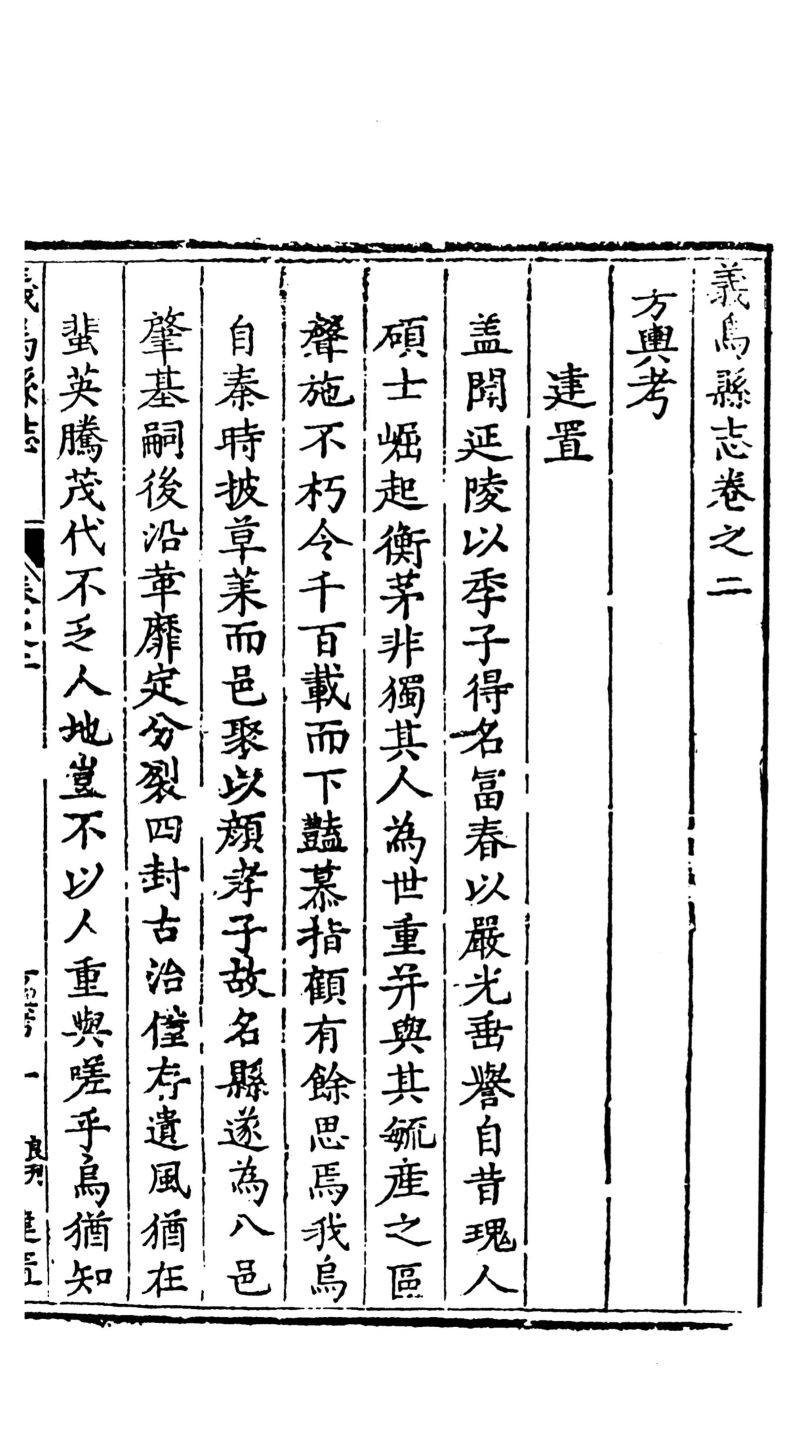 義烏縣志卷之二
方輿考
建置
盖聞延陵以季子得名富春以嚴光垂譽自昔瑰人
碩士崛起衡茅非獨其人為世重并與其毓產之區
聲施不朽令千百載而下豔慕指顧有餘思焉我烏
自秦時披草萊而邑聚以顏孝子故名縣遂為八邑
肇基嗣後沿革靡定分裂四封古治僅存遺風猶在
蜚英騰茂代不乏人地豈不以人重與嗟乎烏猶知
義烏縣志 卷之二 一 良刊 建置